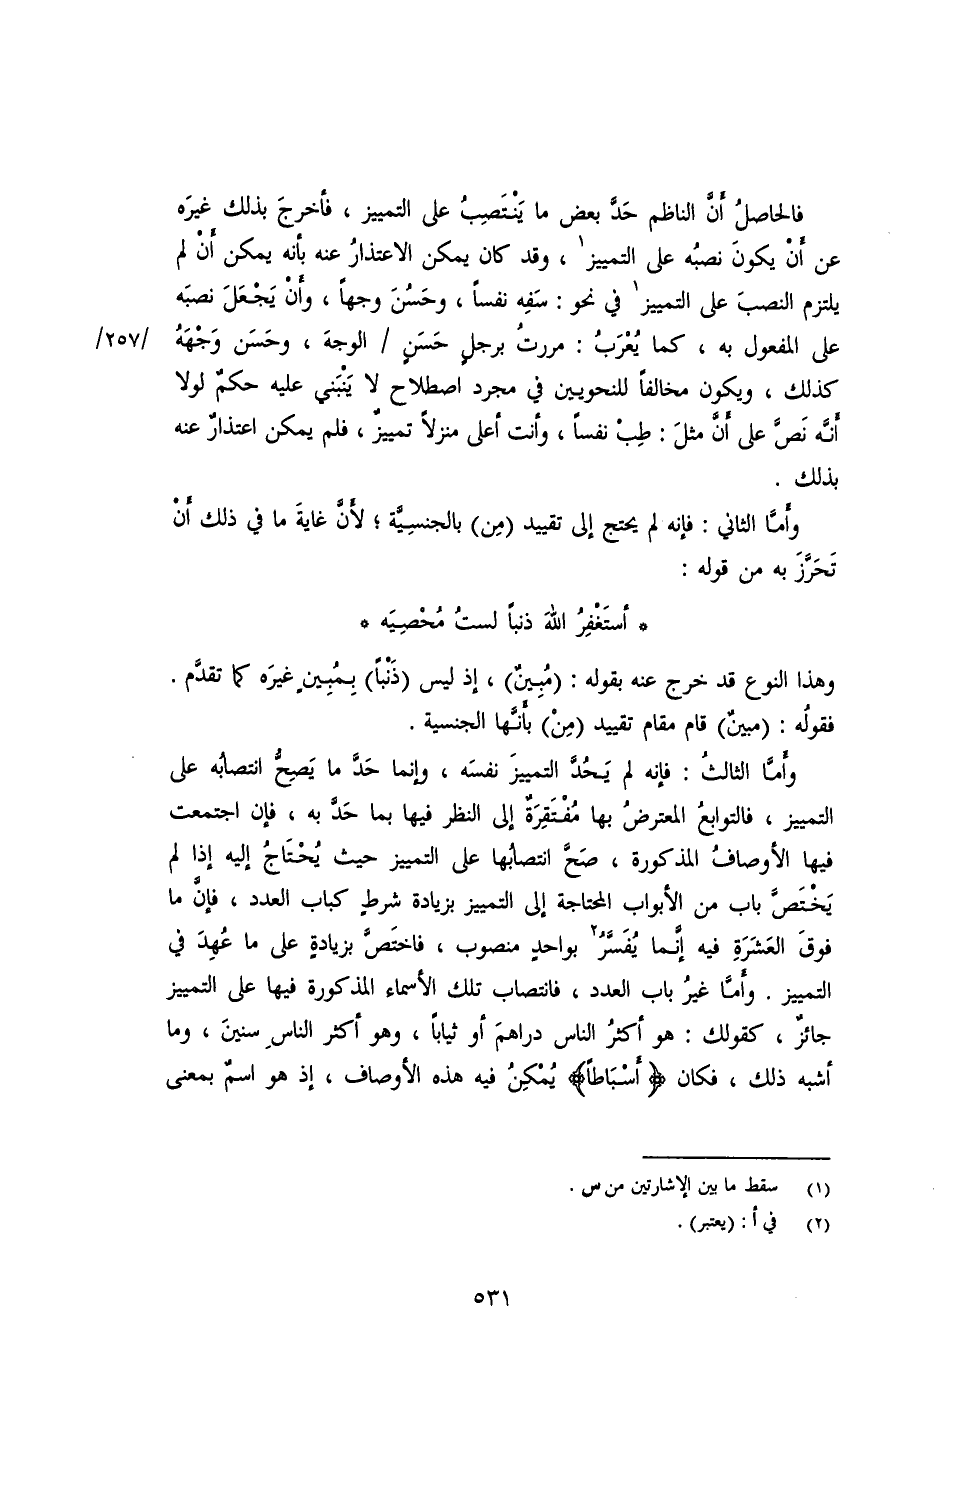 فالحاصلُ أَنَّ الناظم حَدَّ بعض ما يَنْتَصِبُ على التمييز ، فأخرجَ بذلك غيرَه
عن أَنْ يكونَ نصبُه على التمييز١ ، وقد كان يمكن الاعتذارُ عنه بأنه يمكن أَنْ لم
يلتزم النصبَ على التمييز١ في نحو : سَفِه نفساً ، وحَسُنَ وجهاً ، وأَنْ يَجْعَلَ نصبَه
على المفعول به ، كما يُعْرَبُ : مررتُ برجلٍ حَسَنٍ / الوجهَ ، وحَسَن وَجْهَهُ /٢٥٧/
كذلك ، ويكون مخالفاً للنحويين في مجرد اصطلاح لا يَنْبَني عليه حكمٌ لولا
أَنَّه نَصَّ على أَنَّ مثلَ : طِبْ نفساً ، وأنت أعلى منزلاً تمييزٌ ، فلم يمكن اعتذارٌ عنه
بذلك .
وأَمَّا الثاني : فإنه لم يحتج إلى تقييد (مِن) بالجنسِيَّة ؛ لأَنَّ غايةَ ما في ذلك أَنْ
تَحَرَّزَ به من قوله :
* أستَغْفِرُ اللهَ ذنباً لستُ مُحْصِيَه *
وهذا النوع قد خرج عنه بقوله : (مُبِينٌ) ، إذ ليس (ذَنْباً) بِمُبِينٍ غيرَه كما تقدَّم .
فقولُه : (مبينٌ) قام مقام تقييد (مِنْ) بأَنَّها الجنسية .
وأَمَّا الثالثُ : فإنه لم يَحُدَّ التمييزَ نفسَه ، وإنما حَدَّ ما يَصِحُّ انتصابُه على
التمييز ، فالتوابعُ المعترضُ بها مُفْتَقِرَةٌ إلى النظر فيها بما حَدَّ به ، فإن اجتمعت
فيها الأوصافُ المذكورة ، صَحَّ انتصابُها على التمييز حيث يُحْتَاجُ إليه إذا لم
يَخْتَصَّ باب من الأبواب المحتاجة إلى التمييز بزيادة شرطٍ كباب العدد ، فإنَّ ما
فوقَ العَشَرَةِ فيه إنَّما يُفَسَّرُ٢ بواحدٍ منصوب ، فاختَصَّ بزيادةٍ على ما عُهِدَ في
التمييز . وأَمَّا غيرُ باب العدد ، فانتصاب تلك الأسماء المذكورة فيها على التمييز
جائزٌ ، كقولك : هو أكثرُ الناس دراهمَ أو ثياباً ، وهو أكثر الناسِ سنينَ ، وما
أشبه ذلك ، فكان ﴿أَسْبَاطاً﴾ يُمْكِنُ فيه هذه الأوصاف ، إذ هو اسمٌ بمعنى
(١) سقط ما بين الإشارتين من س .
(٢) في أ : (يعتبر) .
٥٣١